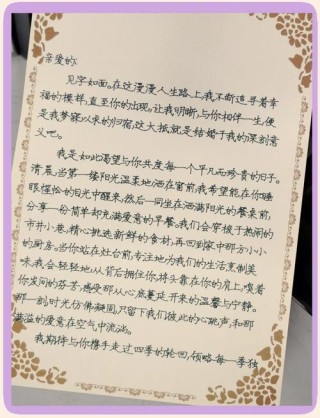 亲爱的:
见字如面。在这漫漫人生路上,我不断追寻着幸
福的模样,直至你的出现。让我明晰,与你相伴一生,便
是我梦寐以求的归宿,这大抵就是结婚于我的深刻意
义吧。
我是如此渴望与你共度每一个平凡而珍贵的日子。
清晨,当第一缕阳光温柔地洒在窗前,我希望能在你睡
眼惺忪的目光中醒来,然后一同坐在洒满阳光的餐桌前,
分享一份简单却充满爱意的早餐。我们会穿梭于热闹的
市井小巷,精心挑选新鲜的食材,再回到家中那方小小
的厨房。当你站在灶台前,专注地为我们的生活烹制美
味,我会轻轻地从背后拥住你,将头靠在你的肩上,嗅着
你发间的芬芳,感受那从心底蔓延开来的温馨与宁静。
那一刻时光仿佛凝固,只留下我们彼此的心跳声,和那
满溢的爱意在空气中流淌。
我期待与你携手走过四季的轮回,领略每一季独